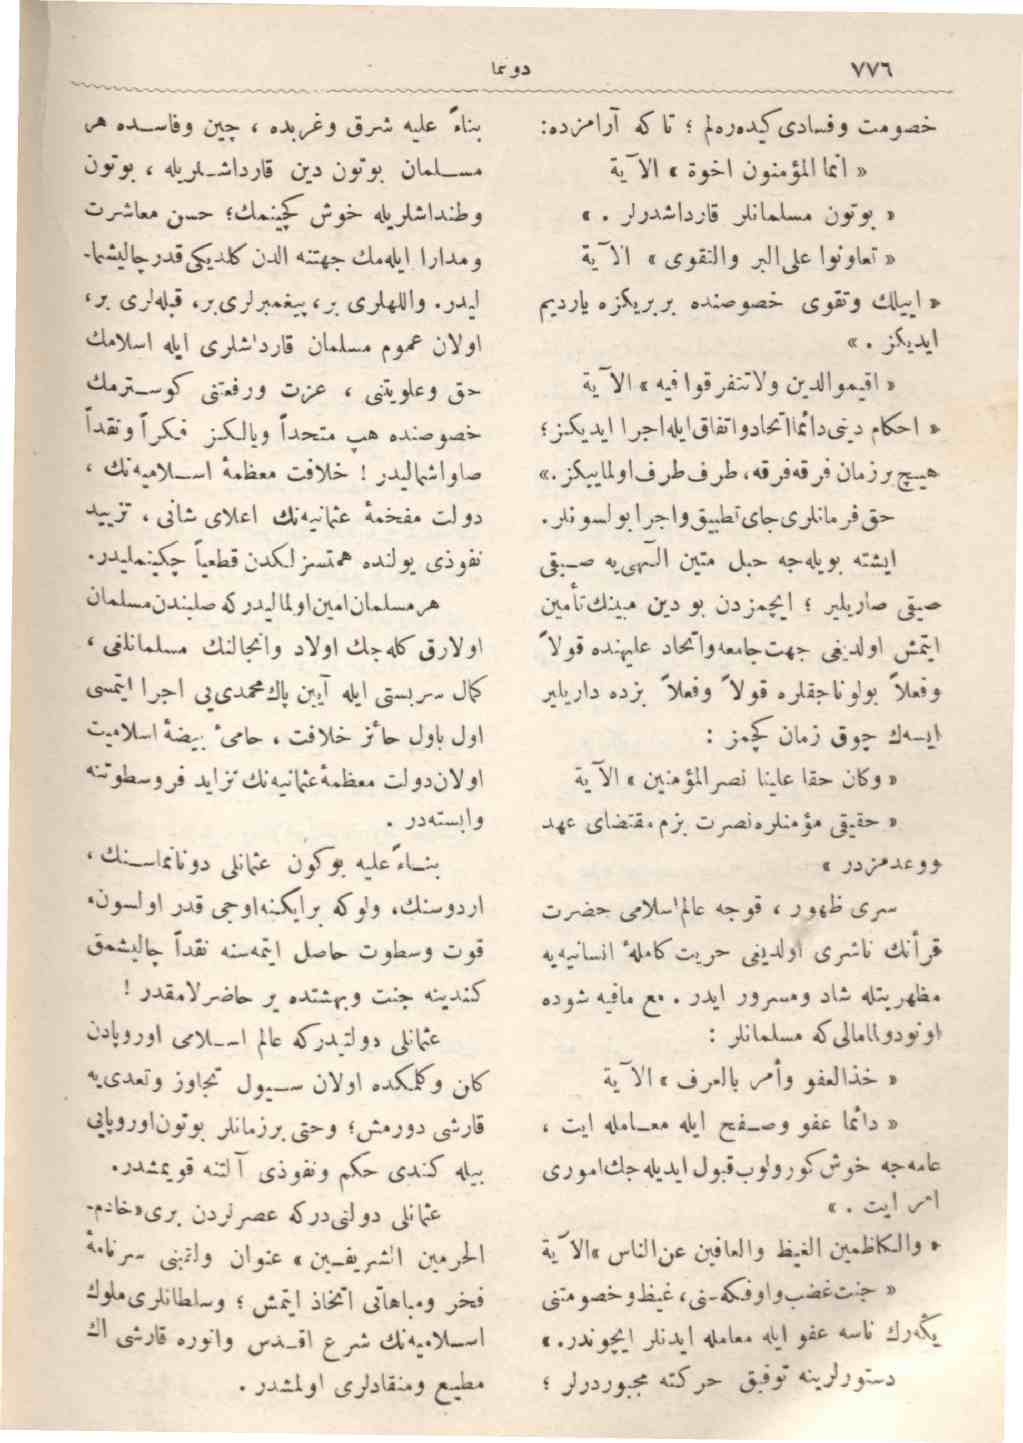 ٧٧٦
دوننما
خصومت وفسادی كیده‌ره‌لم ؛ تا كه آرامزده:
« انما المؤمنون اخوة » الآیة
« بوتون مسلمانلر قارداشدرلر . »
« تعاونوا علی‌البر والتقوی » الآیة
« اییلك وتقوی خصوصنده بربریكزه یاردیم
ایدیكز . »
« اقیموا الدین ولا تتفرقوا فیه » الآیة
« احكام دینی دائما اتحاد واتفاق ایله اجرا ایدیكز ؛
هیچ برزمان فرقه فرقه، طرف طرف اولماییكز .»
حق فرمانلری جای تطبیق واجرا بولسونلر.
ایشته بویله‌جه حبل متین الٓهی‌یه صیقی
صیقی صاریلیر ؛ ایچمزدن بو دین مبینك تأمین
ایتمش اولدیغی جهت جامعه واتحاد علیهنده قولاً
وفعلاً بولوناجقلره قولاً وفعلاً بزده داریلیر
ایسه‌ك چوق زمان كچمز :
« وكان حقا علینا نصر المؤمنین » الآیة
« حقیقی مؤمنلره نصرت بزم مقتضای عهد
ووعدمزدر »
سری ظهور ، قوجه عالم اسلامی حضرت
قرأنك ناشری اولدیغی حریت كاملهٔ انسانیه‌یه
مظهریتله شاد ومسرور ایدر . مع مافیه شوده
اونودولمامالی كه مسلمانلر :
« خذ العفو وأمر بالعرف » الآیة
« دائما عفو وصفح ایله معامله ایت ،
عامه‌جه خوش كورولوب قبول ایدیله‌جك اموری
امر ایت . »
« والكاظمین الغیظ والعافین عن‌الناس » الآیة
« جنت غضب واوفكه‌نی، غیظ وخصومتنی
یكه‌رك ناسه عفو ایله معامله ایدنلر ایچوندر. »
دستورلرینه توفیق حركته مجبوردرلر ؛
بناءً علیه شرق وغربده ، چین وفاسده هر
مسلمان بوتون دین قارداشلریله ، بوتون
وطنداشلریله خوش كچینمك؛ حسن معاشرت
ومدارا ایله‌مك جهتنه الدن كلدیكی قدر چالیشما-
لیدر. واللهلری بر، پیغمبرلری بر، قبله‌لری بر،
اولان عموم مسلمان قارداشلری ایله اسلامك
حق وعلویتنی ، عزت ورفعتنی كوسترمك
خصوصنده هپ متحداً ویالكز فكراً ونقداً
صاواشمالیدر ! خلافت معظمهٔ اسلامیه‌نك ،
دولت مفخمهٔ عثمانیه‌نك اعلای شانی ، تزیید
نفوذی یولنده همتسزلكدن قطعیاً چكینملیدر.
هرمسلمان امین اولمالیدر كه صلبندن مسلمان
اولارق كله‌جك اولاد وانجالنك مسلمانلغی ،
كمال سربستی ایله آیین پاك محمدی‌یی اجرا ایتمسی
اول باول حائز خلافت ، حامیٔ بیضهٔ اسلامیت
اولان دولت معظمهٔ عثمانیه‌نك تزاید فر وسطوتنه
وابسته‌در .
بناءً علیه بوكون عثمانلی دونانماسنك ،
اردوسنك، ولوكه برایكنه‌اوجی قدر اولسون،
قوت وسطوت حاصل ایتمه‌سنه نقداً چالیشمق
كندینه جنت وبهشتده یر حاضرلامقدر !
عثمانلی دولتیدركه عالم اسلامی اوروپادن
كلن وكلمكده اولان سیول تجاوز وتعدی‌یه
قارشی دورمش؛ وحتی برزمانلر بوتون اوروپایی
بیله كندی حكم ونفوذی آلتنه قویمشدر.
عثمانلی دولتی‌دركه عصرلردن بری «خادم-
الحرمین الشریفین » عنوان ولقبنی سرنامهٔ
فخر ومباهاتی اتخاذ ایتمش ؛ وسلطانلری ملوك
اسلامیه‌نك شرع اقدس وانوره قارشی اك
مطیع ومنقادلری اولمشدر .